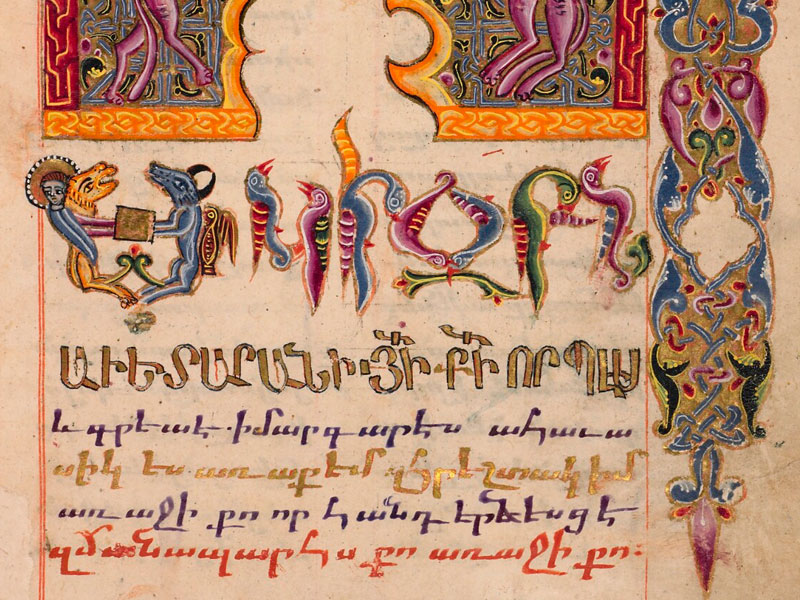 Սկիզբն
ԱՒԵՏԱՐԱՆԻ ՅԻ ՔԻ ՈՐՊԷՍ
և գրեալ է · ի մարգարէս ահաւա
սիկ ես առաքեմ զհրեշտակ իմ
առաջի քո որ հանդերձեսցէ
զճանապարհս քո առաջի քո: